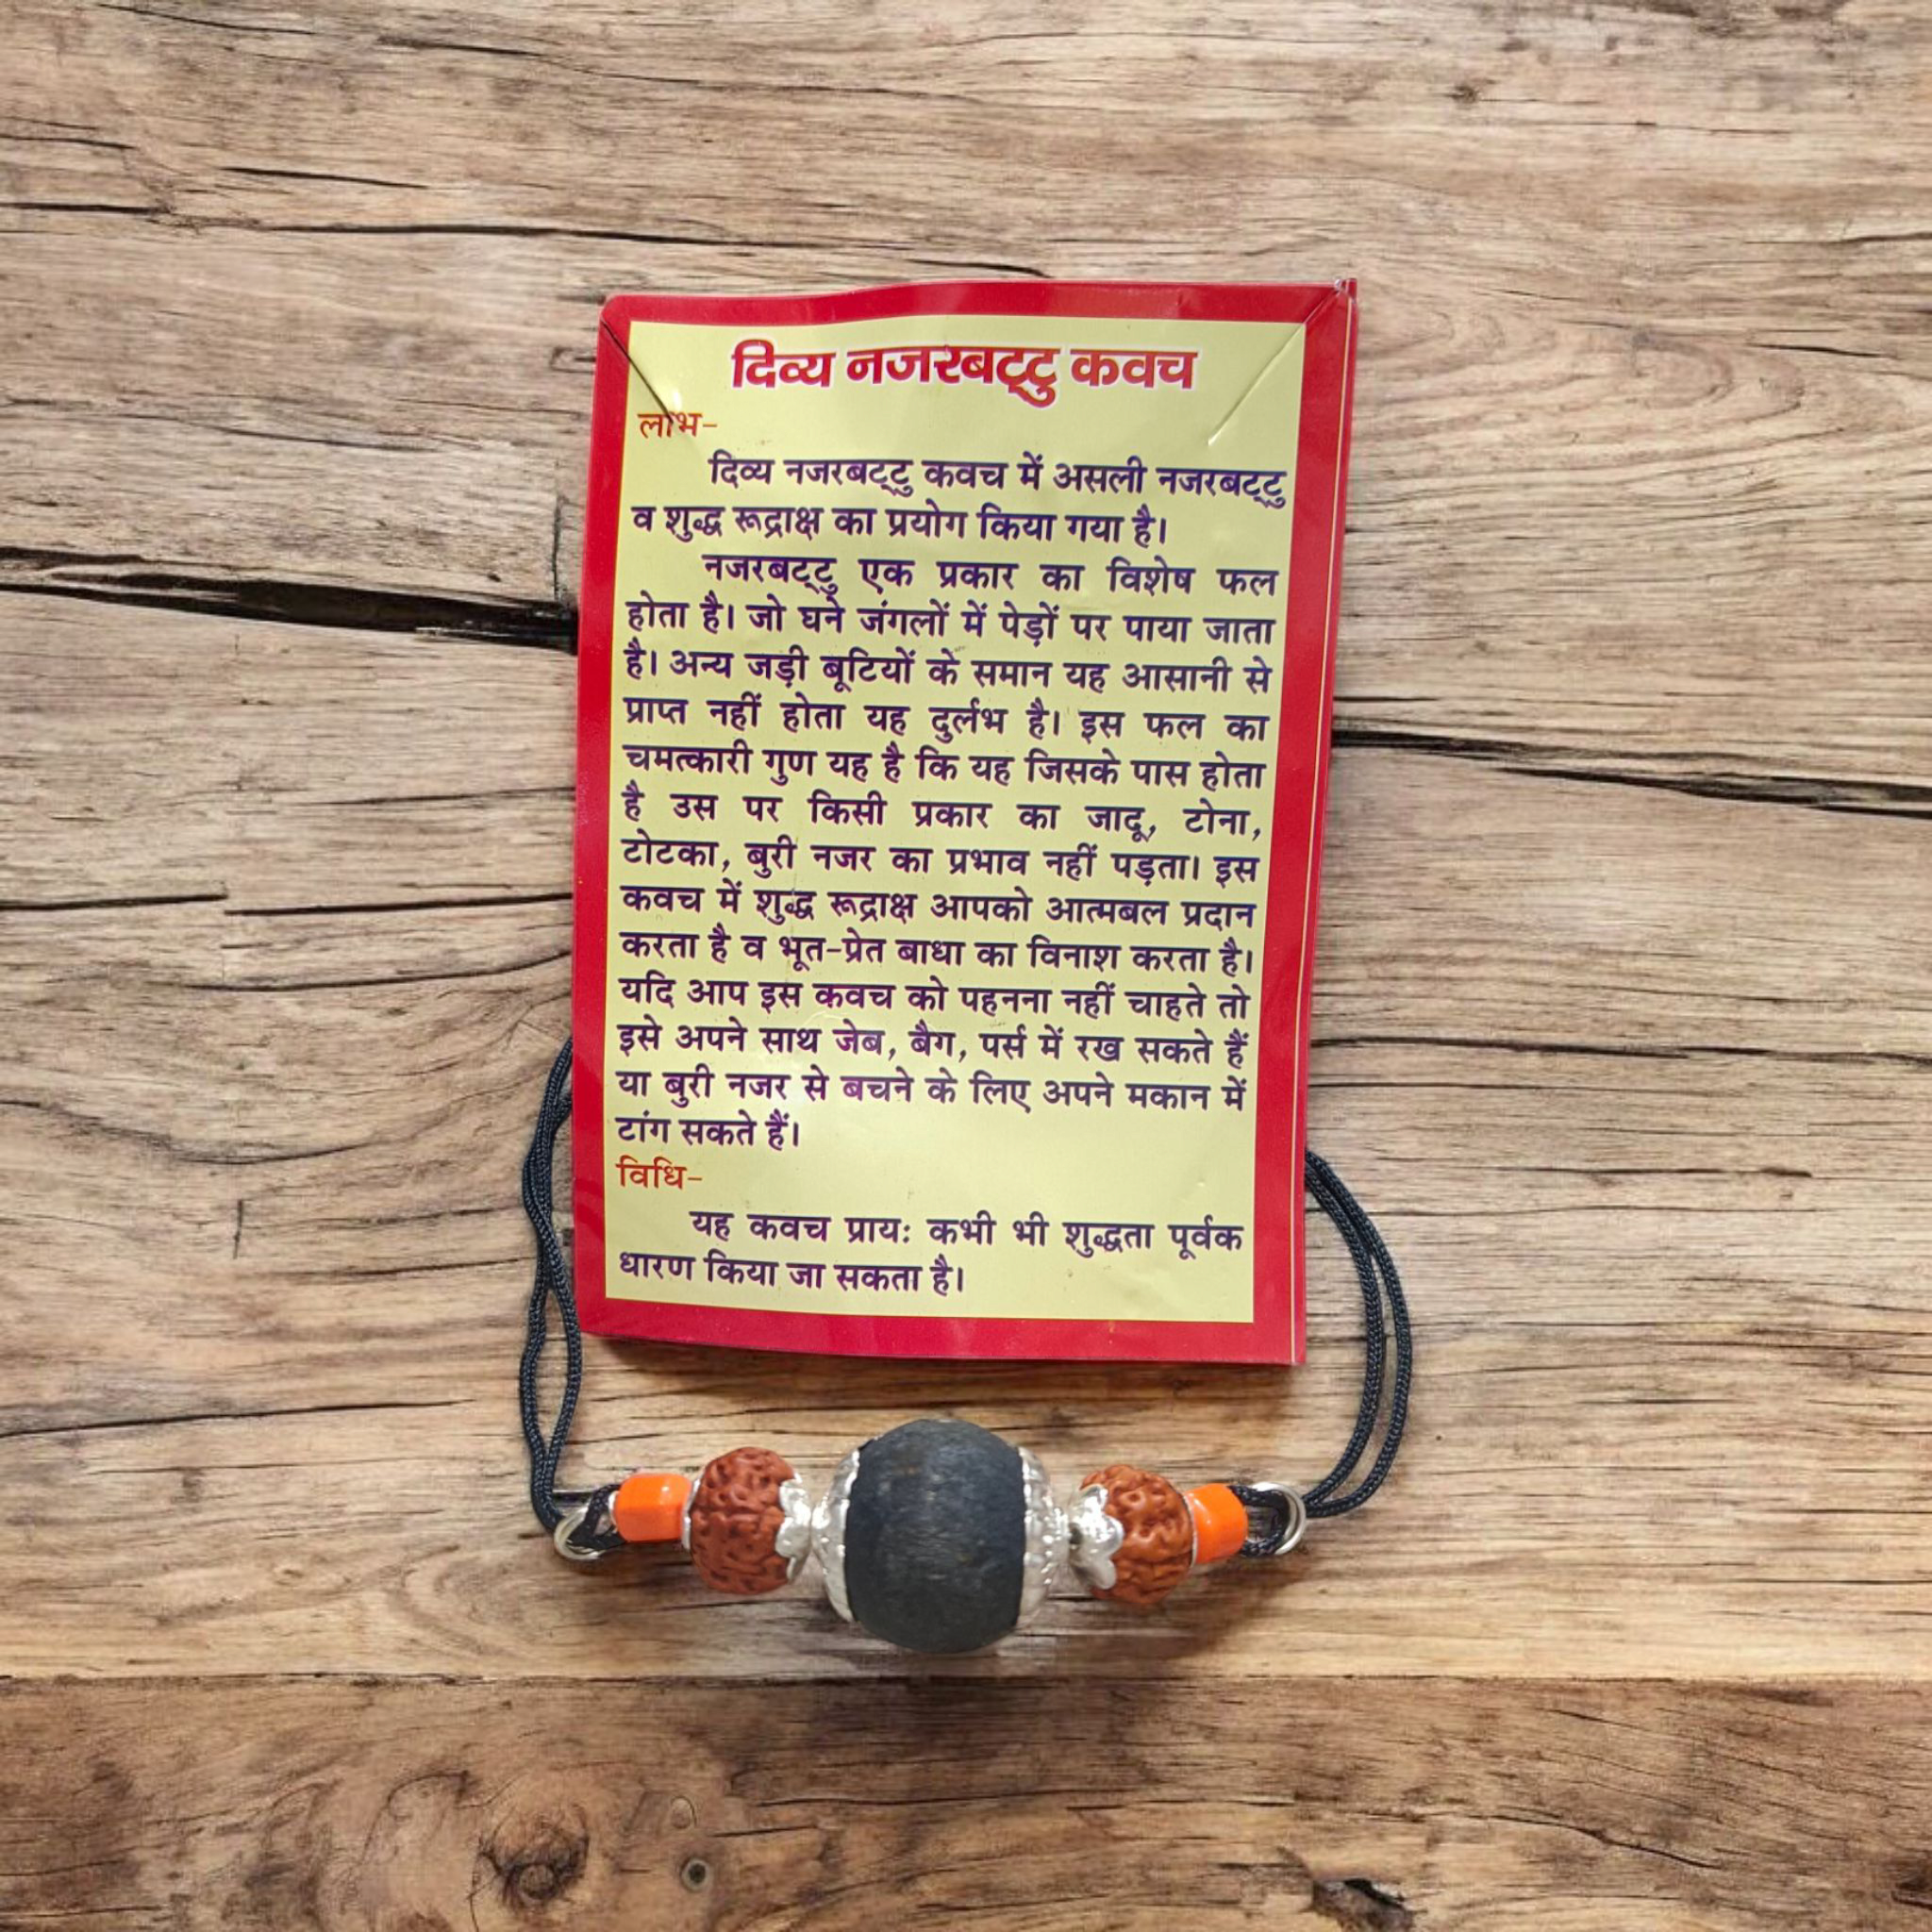 दिव्य नजरबट्टु कवच
लाभ-
दिव्य नजरबट्टु कवच में असली नजरबट्टु
व शुद्ध रूद्राक्ष का प्रयोग किया गया है।
नजरबट्टु एक प्रकार का विशेष फल
होता है। जो घने जंगलों में पेड़ों पर पाया जाता
है। अन्य जड़ी बूटियों के समान यह आसानी से
प्राप्त नहीं होता यह दुर्लभ है। इस फल का
चमत्कारी गुण यह है कि यह जिसके पास होता
है उस पर किसी प्रकार का जादू, टोना,
टोटका, बुरी नजर का प्रभाव नहीं पड़ता। इस
कवच में शुद्ध रूद्राक्ष आपको आत्मबल प्रदान
करता है व भूत-प्रेत बाधा का विनाश करता है।
यदि आप इस कवच को पहनना नहीं चाहते तो
इसे अपने साथ जेब, बैग, पर्स में रख सकते हैं
या बुरी नजर से बचने के लिए अपने मकान में
टांग सकते हैं।
विधि-
यह कवच प्रायः कभी भी शुद्धता पूर्वक
धारण किया जा सकता है।